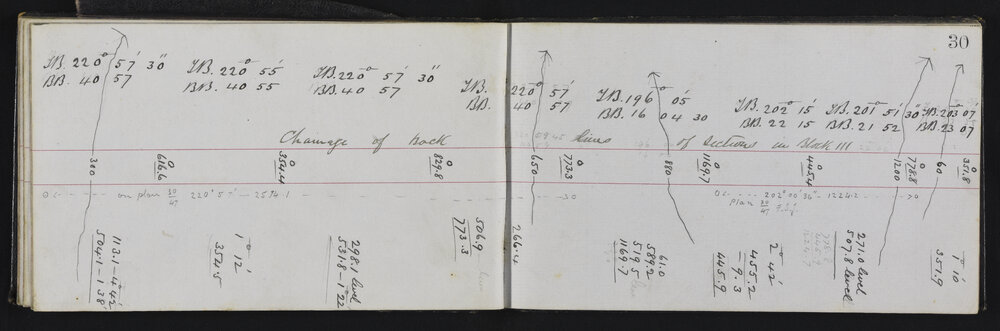 30
FB. 220° 57' 30"
BB. 40 57
FB. 220° 55'
BB. 40 55
FB. 220° 57' 30"
BB. 40 57
FB. 220° 57'
BB. 40 57
FB. 196° 05'
BB. 16 04 30
FB. 202° 15'
BB. 22 15
FB. 201° 51' 30"
BB. 21 52
FB. 203° 07'
BB. 23 07
Chainage of Back lines of Sections in Block III
300
0
616.6
0
354.4
0
829.8
650
0
773.3
880
0
1169.7
0
445.4
1200
0
778.8
60
0
351.8
0 on plan 30/47 220° 57' — 2574.1 — 30
0 202° 00' 36" — 1224.2 — 30
Plan 30/47
113.1 — 4° 42'
504.1 — 1° 38'
1° 12'
354.5
298.1 level
531.8 — 1° 22'
506.9
773.3
266.4
61.0
589.2
519.5
1169.7
2° 42'
455.2
— 9.3
445.9
271.0 level
507.8 level
1° 10'
351.9